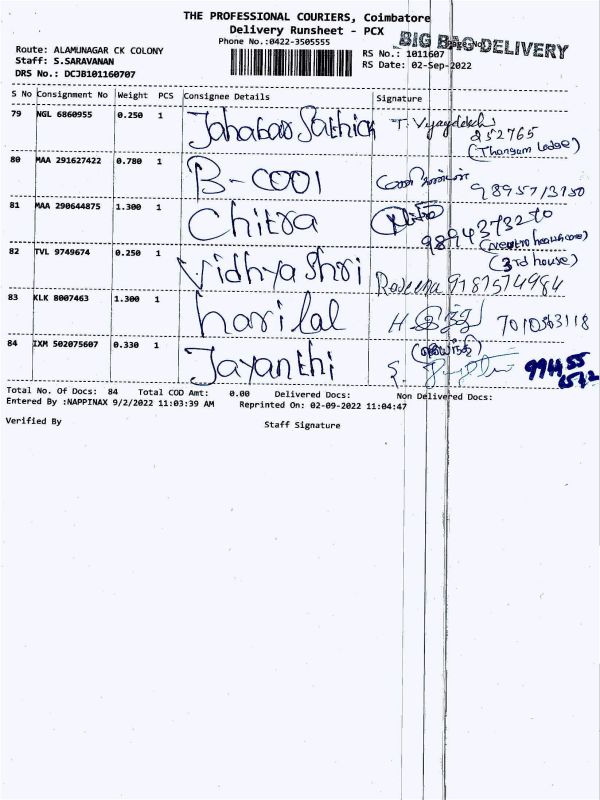 THE PROFESSIONAL COURIERS, Coimbatore
Delivery Runsheet - PCX
Phone No.:0422-3505555
BIG BAG DELIVERY
Route: ALAMUNAGAR CK COLONY
RS No.: 1011607
Staff: S.SARAVANAN
RS Date: 02-Sep-2022
DRS No.: DCJB101160707
S No Consignment No Weight PCS Consignee Details Signature
79 NGL 6860955 0.250 1 Jahabar Sathick T. Vijayalekshmi
952765
(Thangam Lodge)
80 MAA 291627422 0.780 1 B-COOI
81 MAA 290644875 1.300 1 Chitra 9894373270
82 TVL 9749674 0.250 1 Vidhya Shri (3rd house)
Rasheena 9187574984
83 KLK 8007463 1.300 1 harilal 7010563118
84 IXM 502075607 0.330 1 Jayanthi 99455
Total No. Of Docs: 84 Total COD Amt: 0.00 Delivered Docs: Non Delivered Docs:
Entered By :NAPPINAX 9/2/2022 11:03:39 AM Reprinted On: 02-09-2022 11:04:47
Verified By Staff Signature